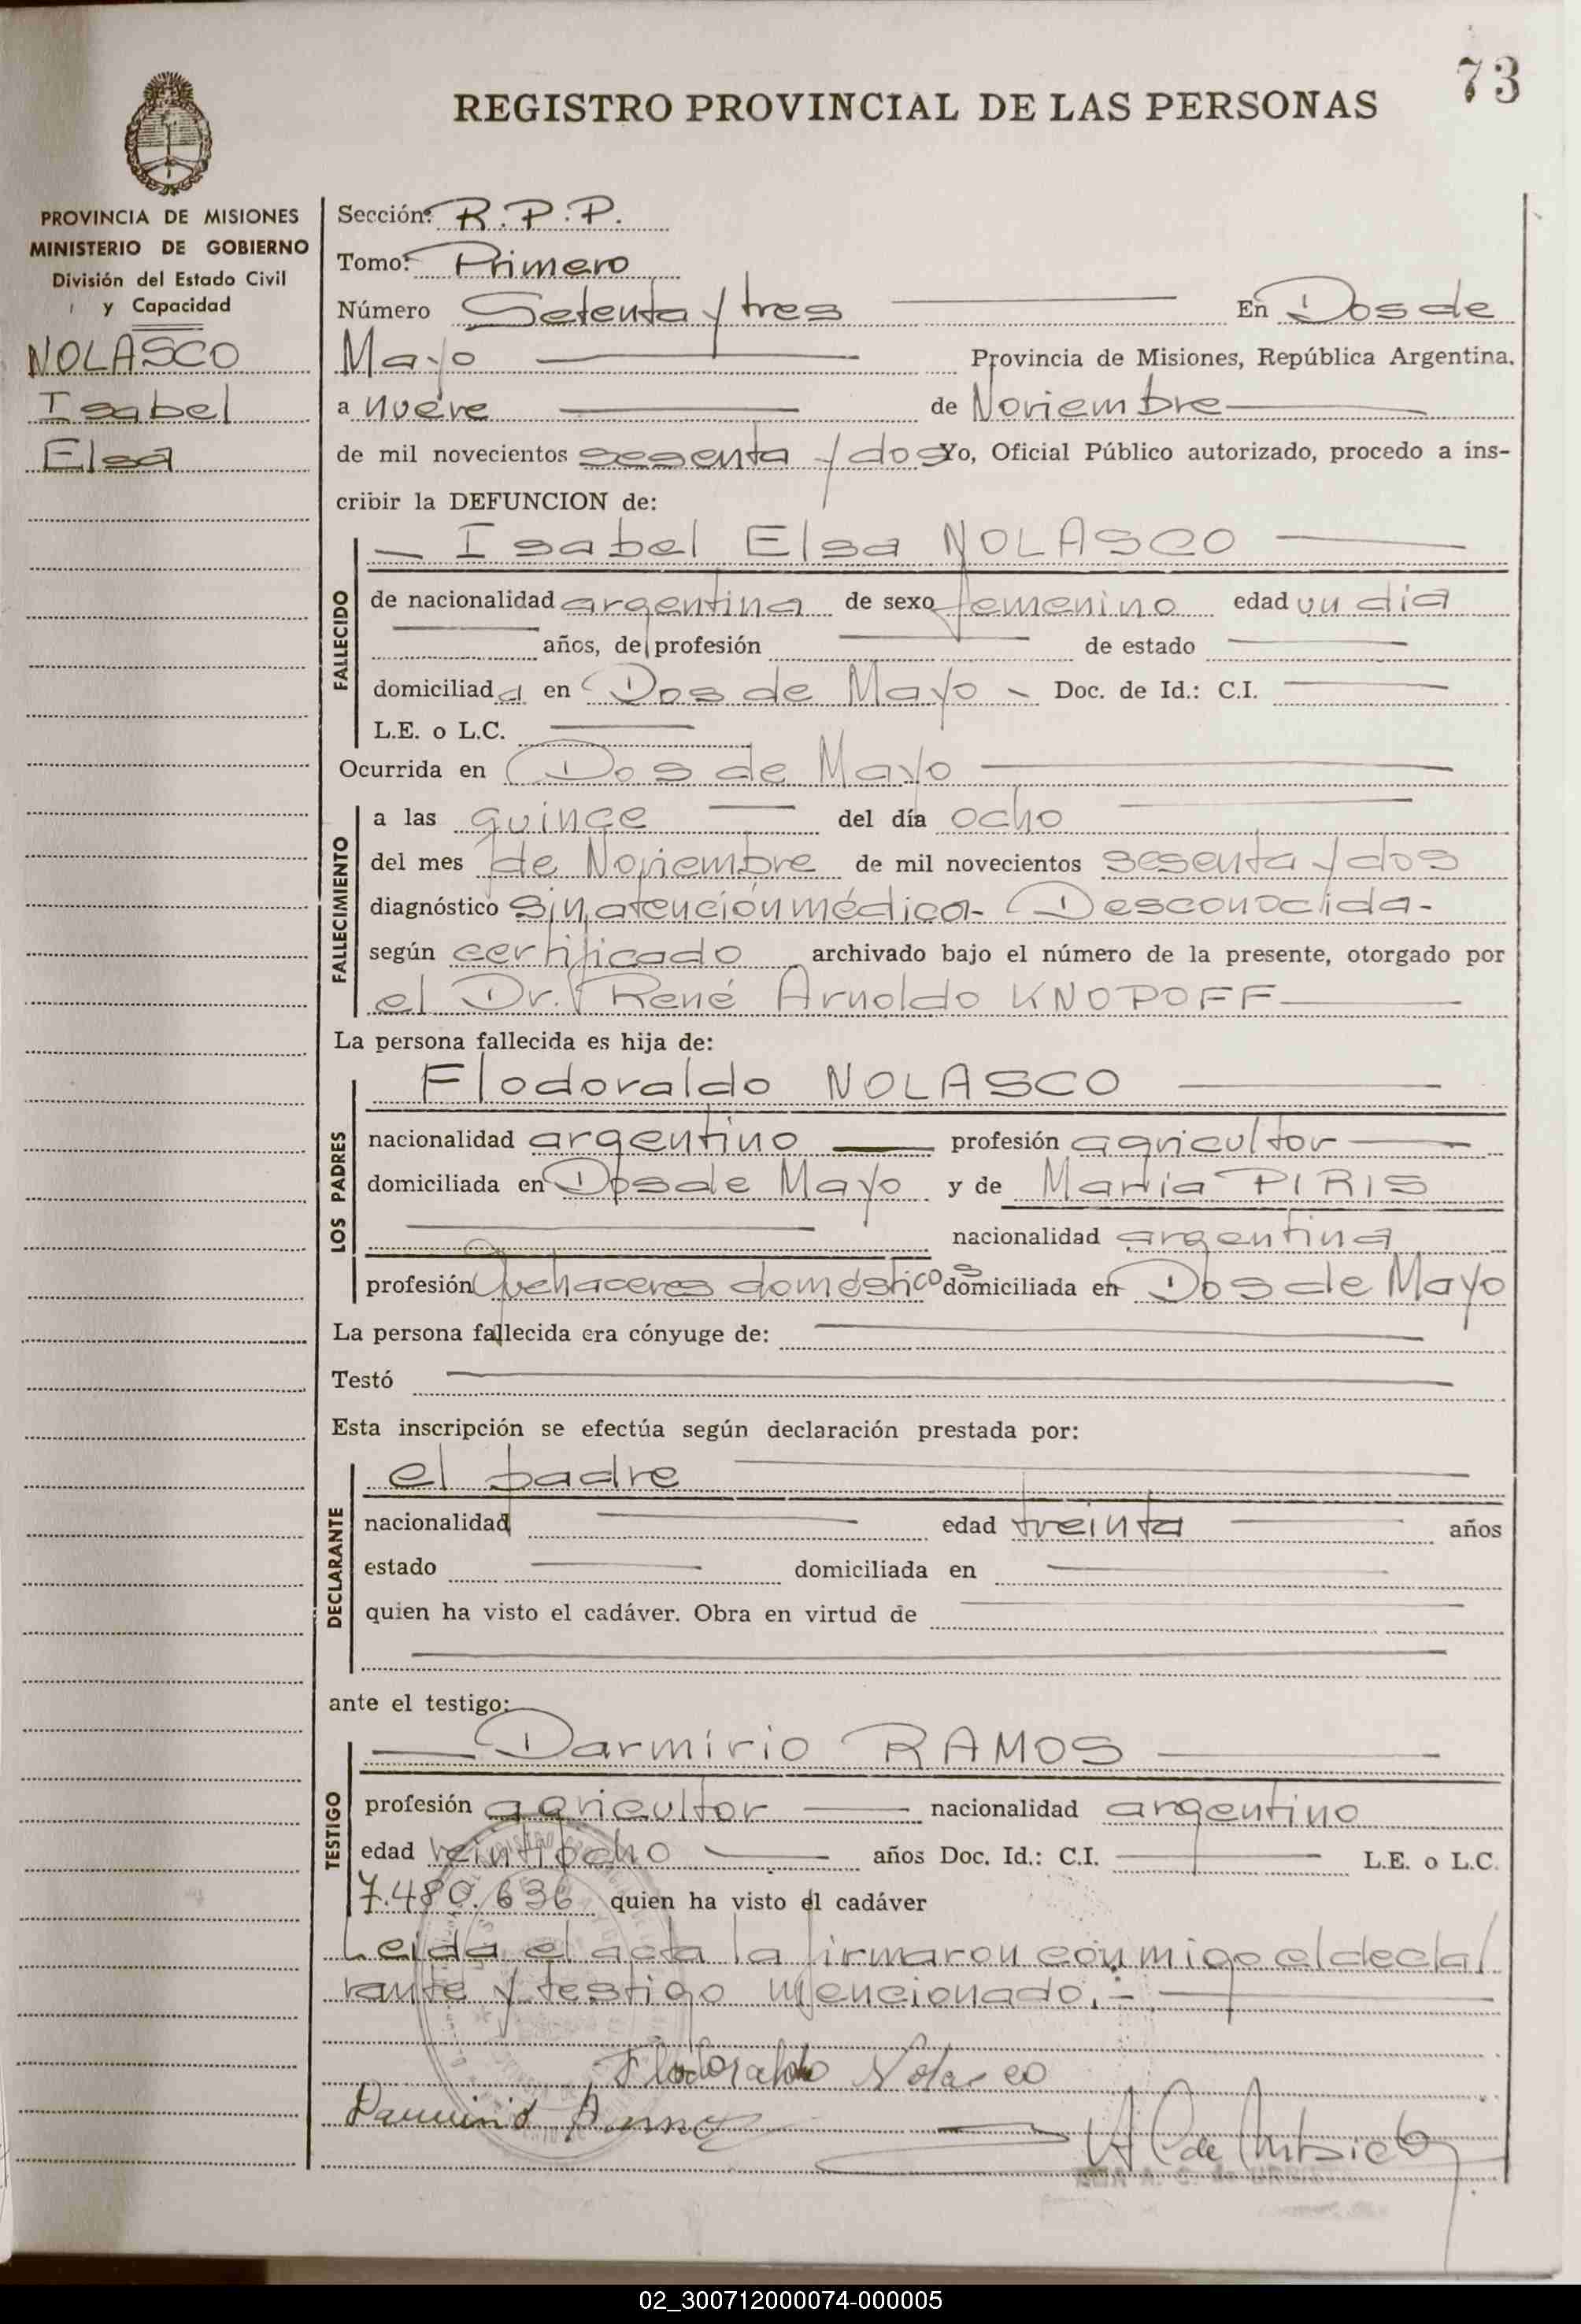 73
REGISTRO PROVINCIAL DE LAS PERSONAS
PROVINCIA DE MISIONES
MINISTERIO DE GOBIERNO
División del Estado Civil
y Capacidad
NOLASCO
Isabel
Elsa
Sección: R.P.P.
Tomo: Primero
Número Setenta y tres En Dos de
Mayo Provincia de Misiones, República Argentina.
a nueve de Noviembre
de mil novecientos sesenta y dos Yo, Oficial Público autorizado, procedo a ins-
cribir la DEFUNCION de:
Isabel Elsa NOLASCO
FALLECIDO
de nacionalidad argentina de sexo femenino edad un día
años, de profesión de estado
domiciliada en Dos de Mayo - Doc. de Id.: C.I.
L.E. o L.C.
Ocurrida en Dos de Mayo
FALLECIMIENTO
a las quince del día ocho
del mes de Noviembre de mil novecientos sesenta y dos
diagnóstico Sin atención médica - Desconocida -
según certificado archivado bajo el número de la presente, otorgado por
el Dr. René Arnoldo KNOPOFF
La persona fallecida es hija de:
LOS PADRES
Flodoraldo NOLASCO
nacionalidad argentino profesión agricultor
domiciliada en Dos de Mayo y de María PIRIS
nacionalidad argentina
profesión Quehaceres domésticos domiciliada en Dos de Mayo
La persona fallecida era cónyuge de:
Testó
Esta inscripción se efectúa según declaración prestada por:
DECLARANTE
el padre
nacionalidad edad treinta años
estado domiciliada en
quien ha visto el cadáver. Obra en virtud de
ante el testigo:
TESTIGO
Darmirio RAMOS
profesión agricultor nacionalidad argentino
edad veintiocho años Doc. Id.: C.I. L.E. o L.C.
7.480.636 quien ha visto el cadáver
Leída el acta la firmaron conmigo el decla/
rante y testigo mencionado.-
Flodoraldo Nolasco
02_300712000074-000005